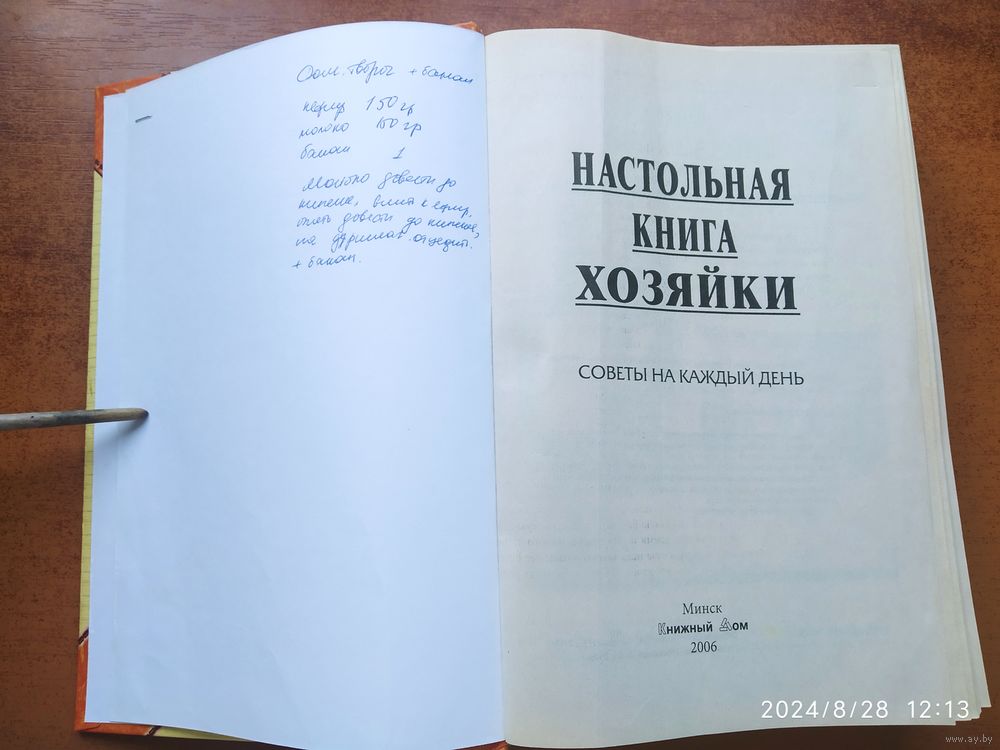 Дом. творог + банан
кефир 150 гр
молоко 150 гр
банан 1
Молоко довести до
кипения, влить кефир,
опять довести до кипения,
на дуршлаг. отцедить.
+ банан.
НАСТОЛЬНАЯ
КНИГА
ХОЗЯЙКИ
СОВЕТЫ НА КАЖДЫЙ ДЕНЬ
Минск
Книжный Дом
2006
2024/8/28 12:13
www.ay.by